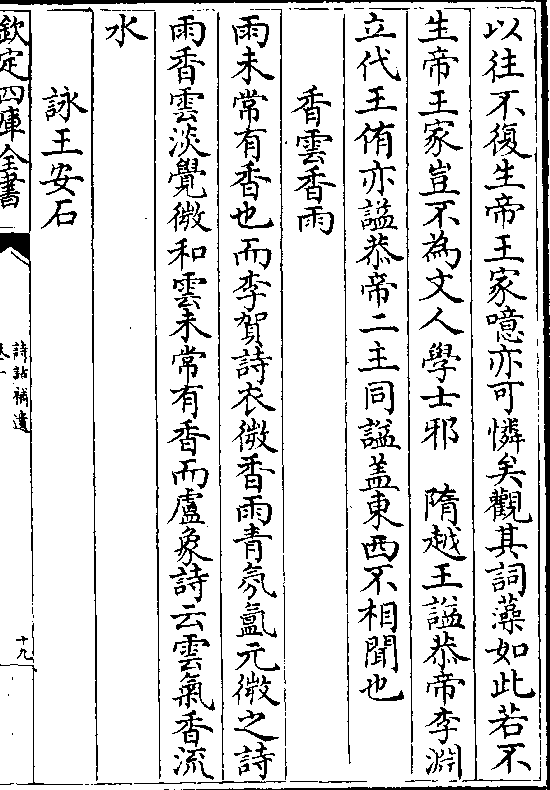 以往不復生帝王家噫亦可憐矣觀其詞藻如此若不
生帝王家豈不為文人學士邪　隋越王謚恭帝李淵
立代王侑亦謚恭帝二主同謚盖東西不相聞也
香雲香雨
雨未常有香也而李賀詩衣微香雨青氛氲元微之詩
雨香雲淡覺微和雲未常有香而盧象詩云雲氣香流
水
詠王安石
欽定四庫全書
詩話補遺
十九